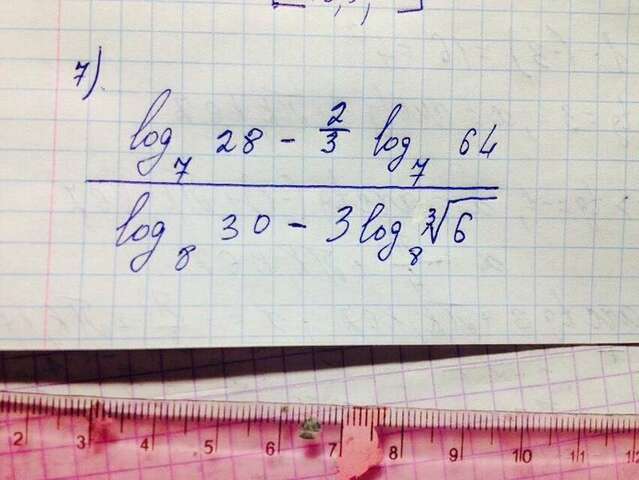 7)
log₇ 28 - 2/3 log₇ 64
log₈ 30 - 3 log₈ ∛6
2 3 4 5 6 7 8 9 10 11 12